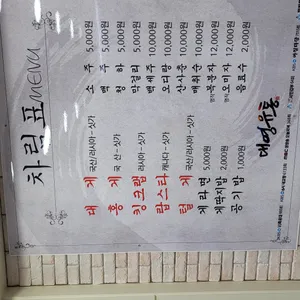 차림표 menu
대 게 국산/러시아 - 싯가
홍 게 국 산 - 싯가
킹크랩 러시아 - 싯가
랍스타 캐나다 - 싯가
털 게 국산/러시아 - 싯가
게 라 면 5,000원
게딱지밥 2,000원
공 기 밥 1,000원
소 주 5,000원
맥 주 5,000원
청 하 5,000원
막걸리 5,000원
백세주 10,000원
오디랑 10,000원
산사춘 10,000원
매취순 10,000원
복분자 12,000원
오미자 12,000원
음료수 2,000원
대명유통